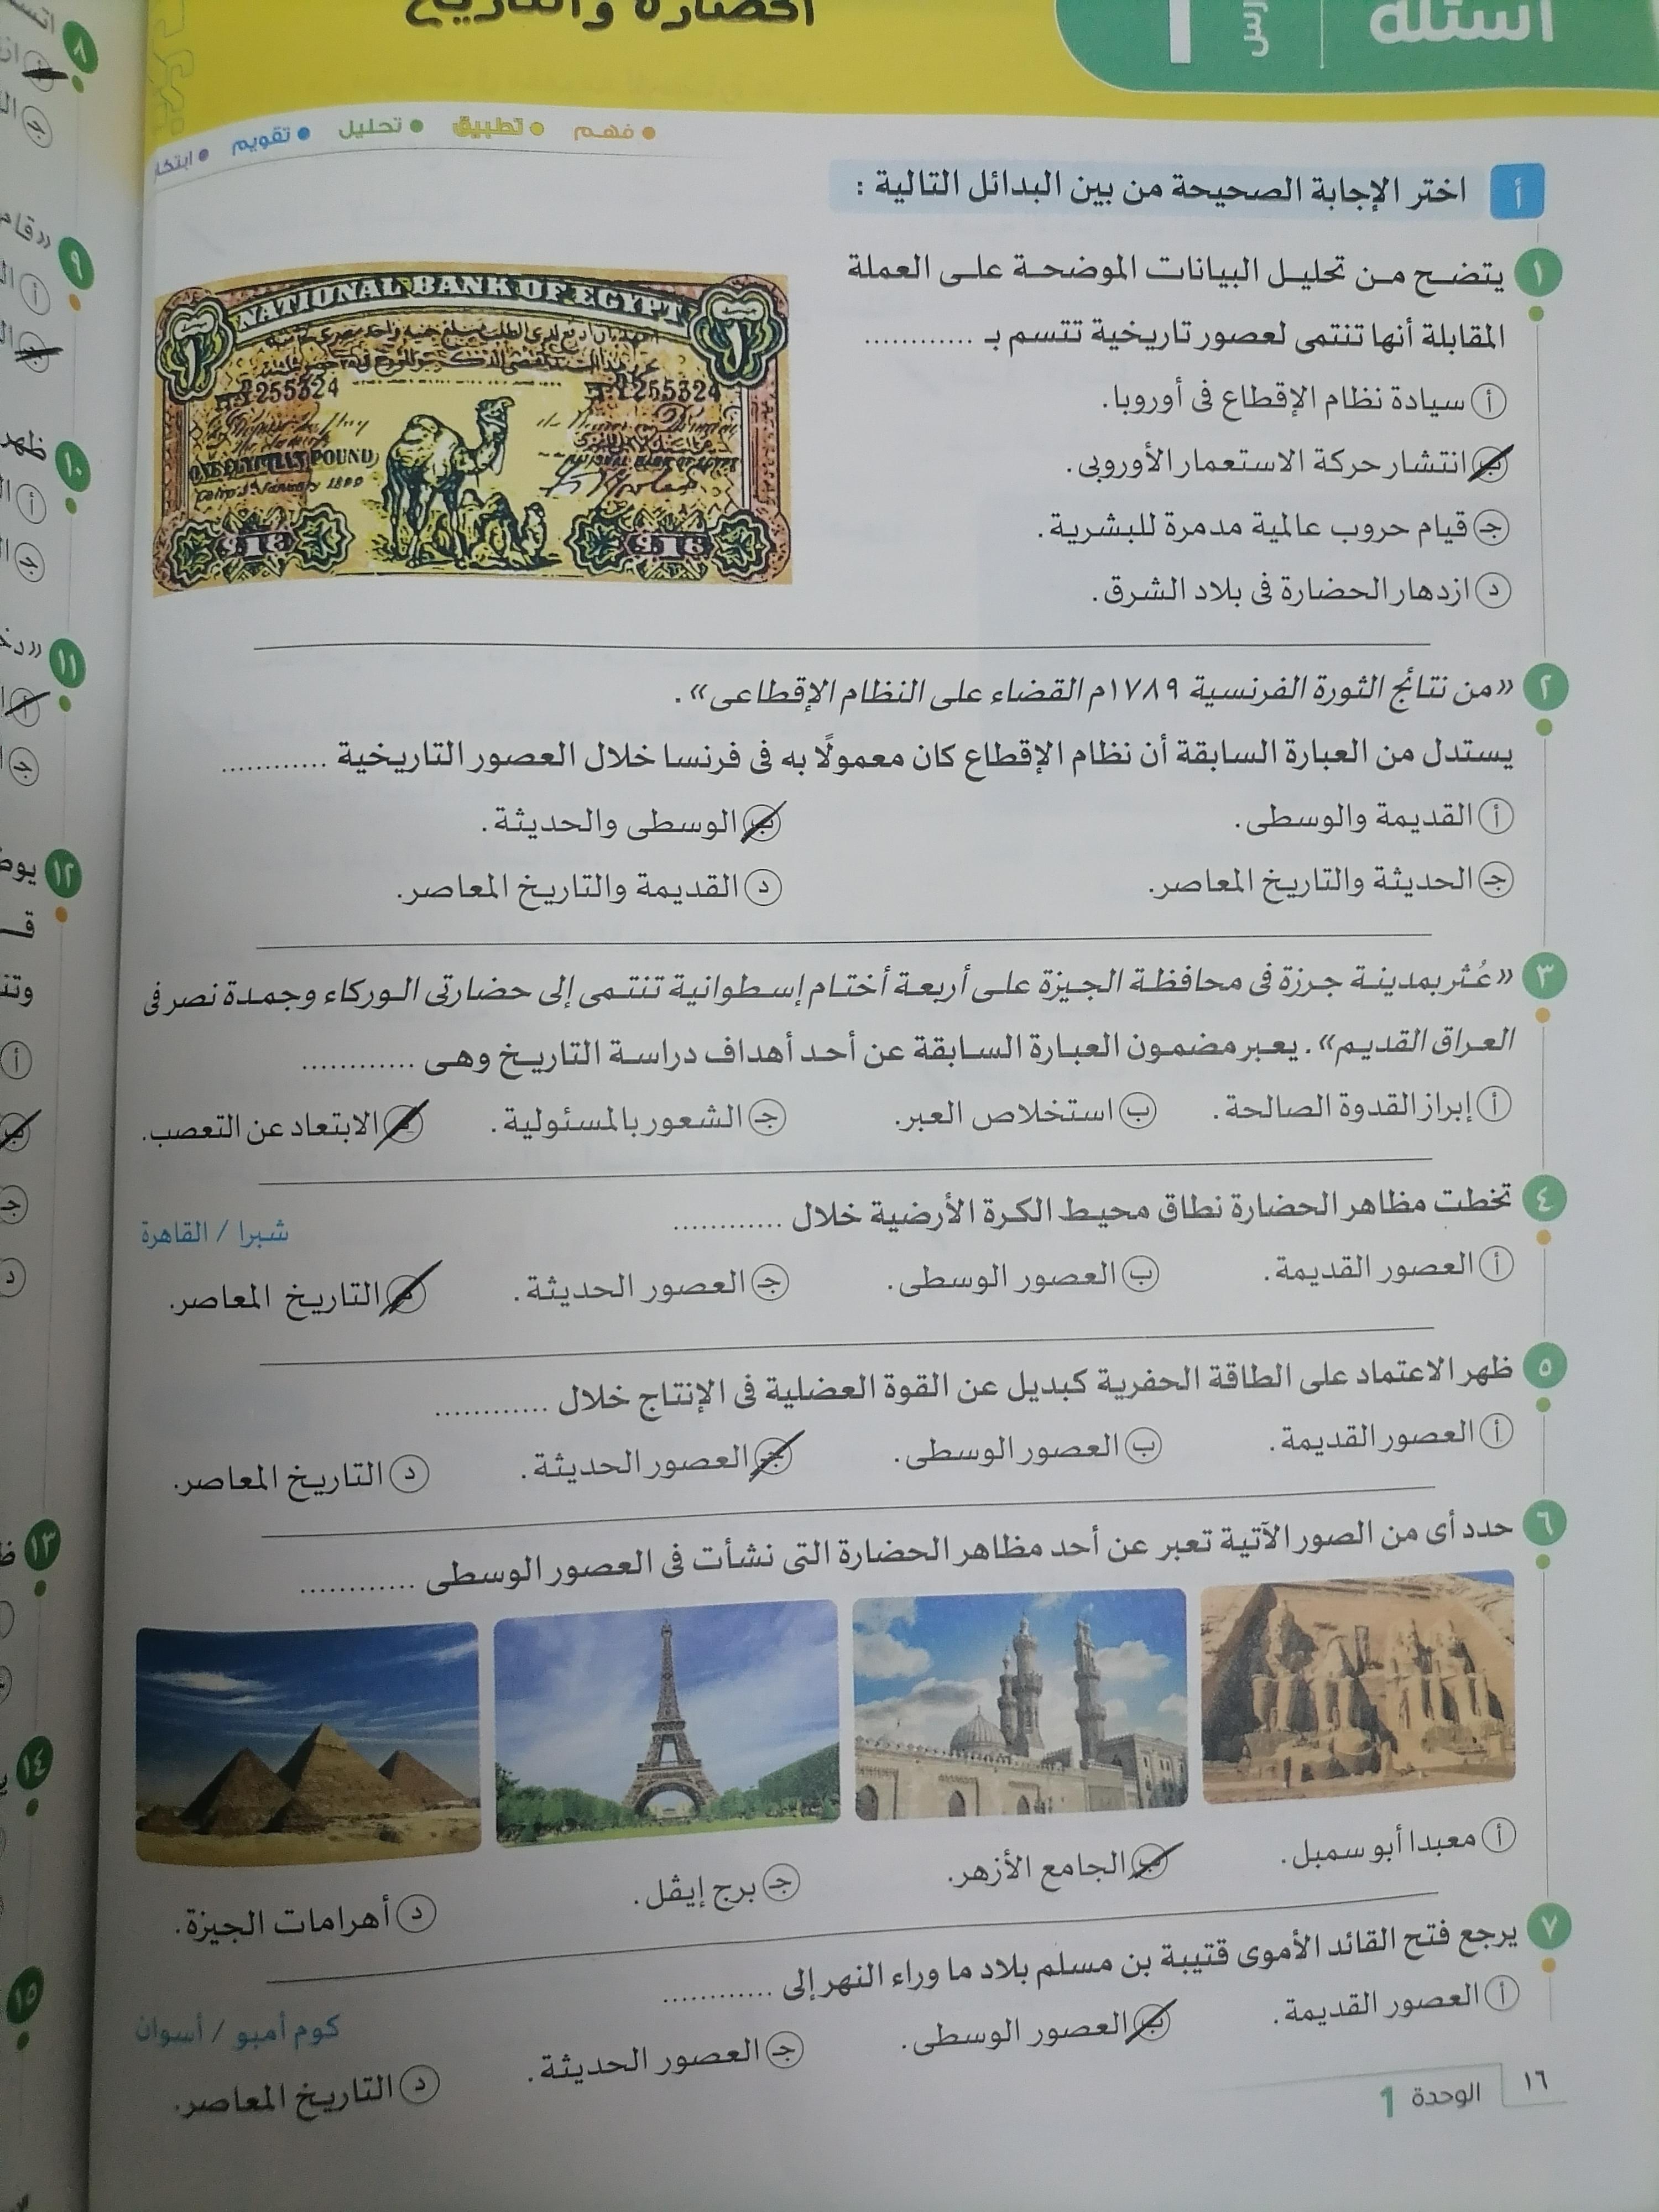 أسئلة
1
الحضارة والتاريخ
فهم • تطبيق • تحليل • تقويم • ابتكار
أ اختر الإجابة الصحيحة من بين البدائل التالية :
١ يتضح من تحليل البيانات الموضحة على العملة
المقابلة أنها تنتمى لعصور تاريخية تتسم بـ ............
أ سيادة نظام الإقطاع فى أوروبا.
ب انتشار حركة الاستعمار الأوروبى.
جـ قيام حروب عالمية مدمرة للبشرية.
د ازدهار الحضارة فى بلاد الشرق.
NATIONAL BANK OF EGYPT
255324
255324
ONE EGYPTIAN POUND
Cairo 5 January 1899
٢ «من نتائج الثورة الفرنسية ١٧٨٩م القضاء على النظام الإقطاعى».
يستدل من العبارة السابقة أن نظام الإقطاع كان معمولًا به فى فرنسا خلال العصور التاريخية ............
أ القديمة والوسطى. ب الوسطى والحديثة.
جـ الحديثة والتاريخ المعاصر. د القديمة والتاريخ المعاصر.
٣ «عُثر بمدينة جرزة فى محافظة الجيزة على أربعة أختام إسطوانية تنتمى إلى حضارتى الوركاء وجمدة نصر فى
العراق القديم». يعبر مضمون العبارة السابقة عن أحد أهداف دراسة التاريخ وهى ............
أ إبراز القدوة الصالحة. ب استخلاص العبر. جـ الشعور بالمسئولية. د الابتعاد عن التعصب.
٤ تخطت مظاهر الحضارة نطاق محيط الكرة الأرضية خلال ............ شبرا / القاهرة
أ العصور القديمة. ب العصور الوسطى. جـ العصور الحديثة. د التاريخ المعاصر.
٥ ظهر الاعتماد على الطاقة الحفرية كبديل عن القوة العضلية فى الإنتاج خلال ............
أ العصور القديمة. ب العصور الوسطى. جـ العصور الحديثة. د التاريخ المعاصر.
٦ حدد أى من الصور الآتية تعبر عن أحد مظاهر الحضارة التى نشأت فى العصور الوسطى ............
أ معبدا أبو سمبل. ب الجامع الأزهر. جـ برج إيڤل. د أهرامات الجيزة.
٧ يرجع فتح القائد الأموى قتيبة بن مسلم بلاد ما وراء النهر إلى ............ كوم أمبو / أسوان
أ العصور القديمة. ب العصور الوسطى. جـ العصور الحديثة. د التاريخ المعاصر.
١٦ الوحدة 1
٨
٩ «قام
١٠ ظهر
١١
١٢
١٣
١٤
١٥